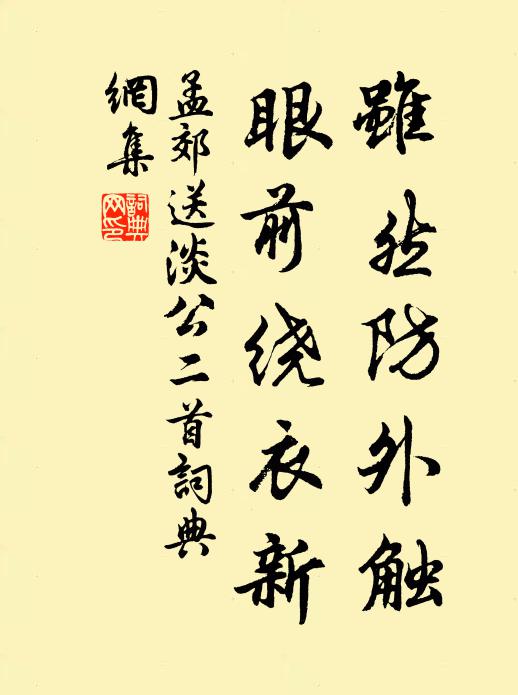 雖然防外触
眼前绕衣新
孟郊送淡公二首詞典
網集
詞典
网印